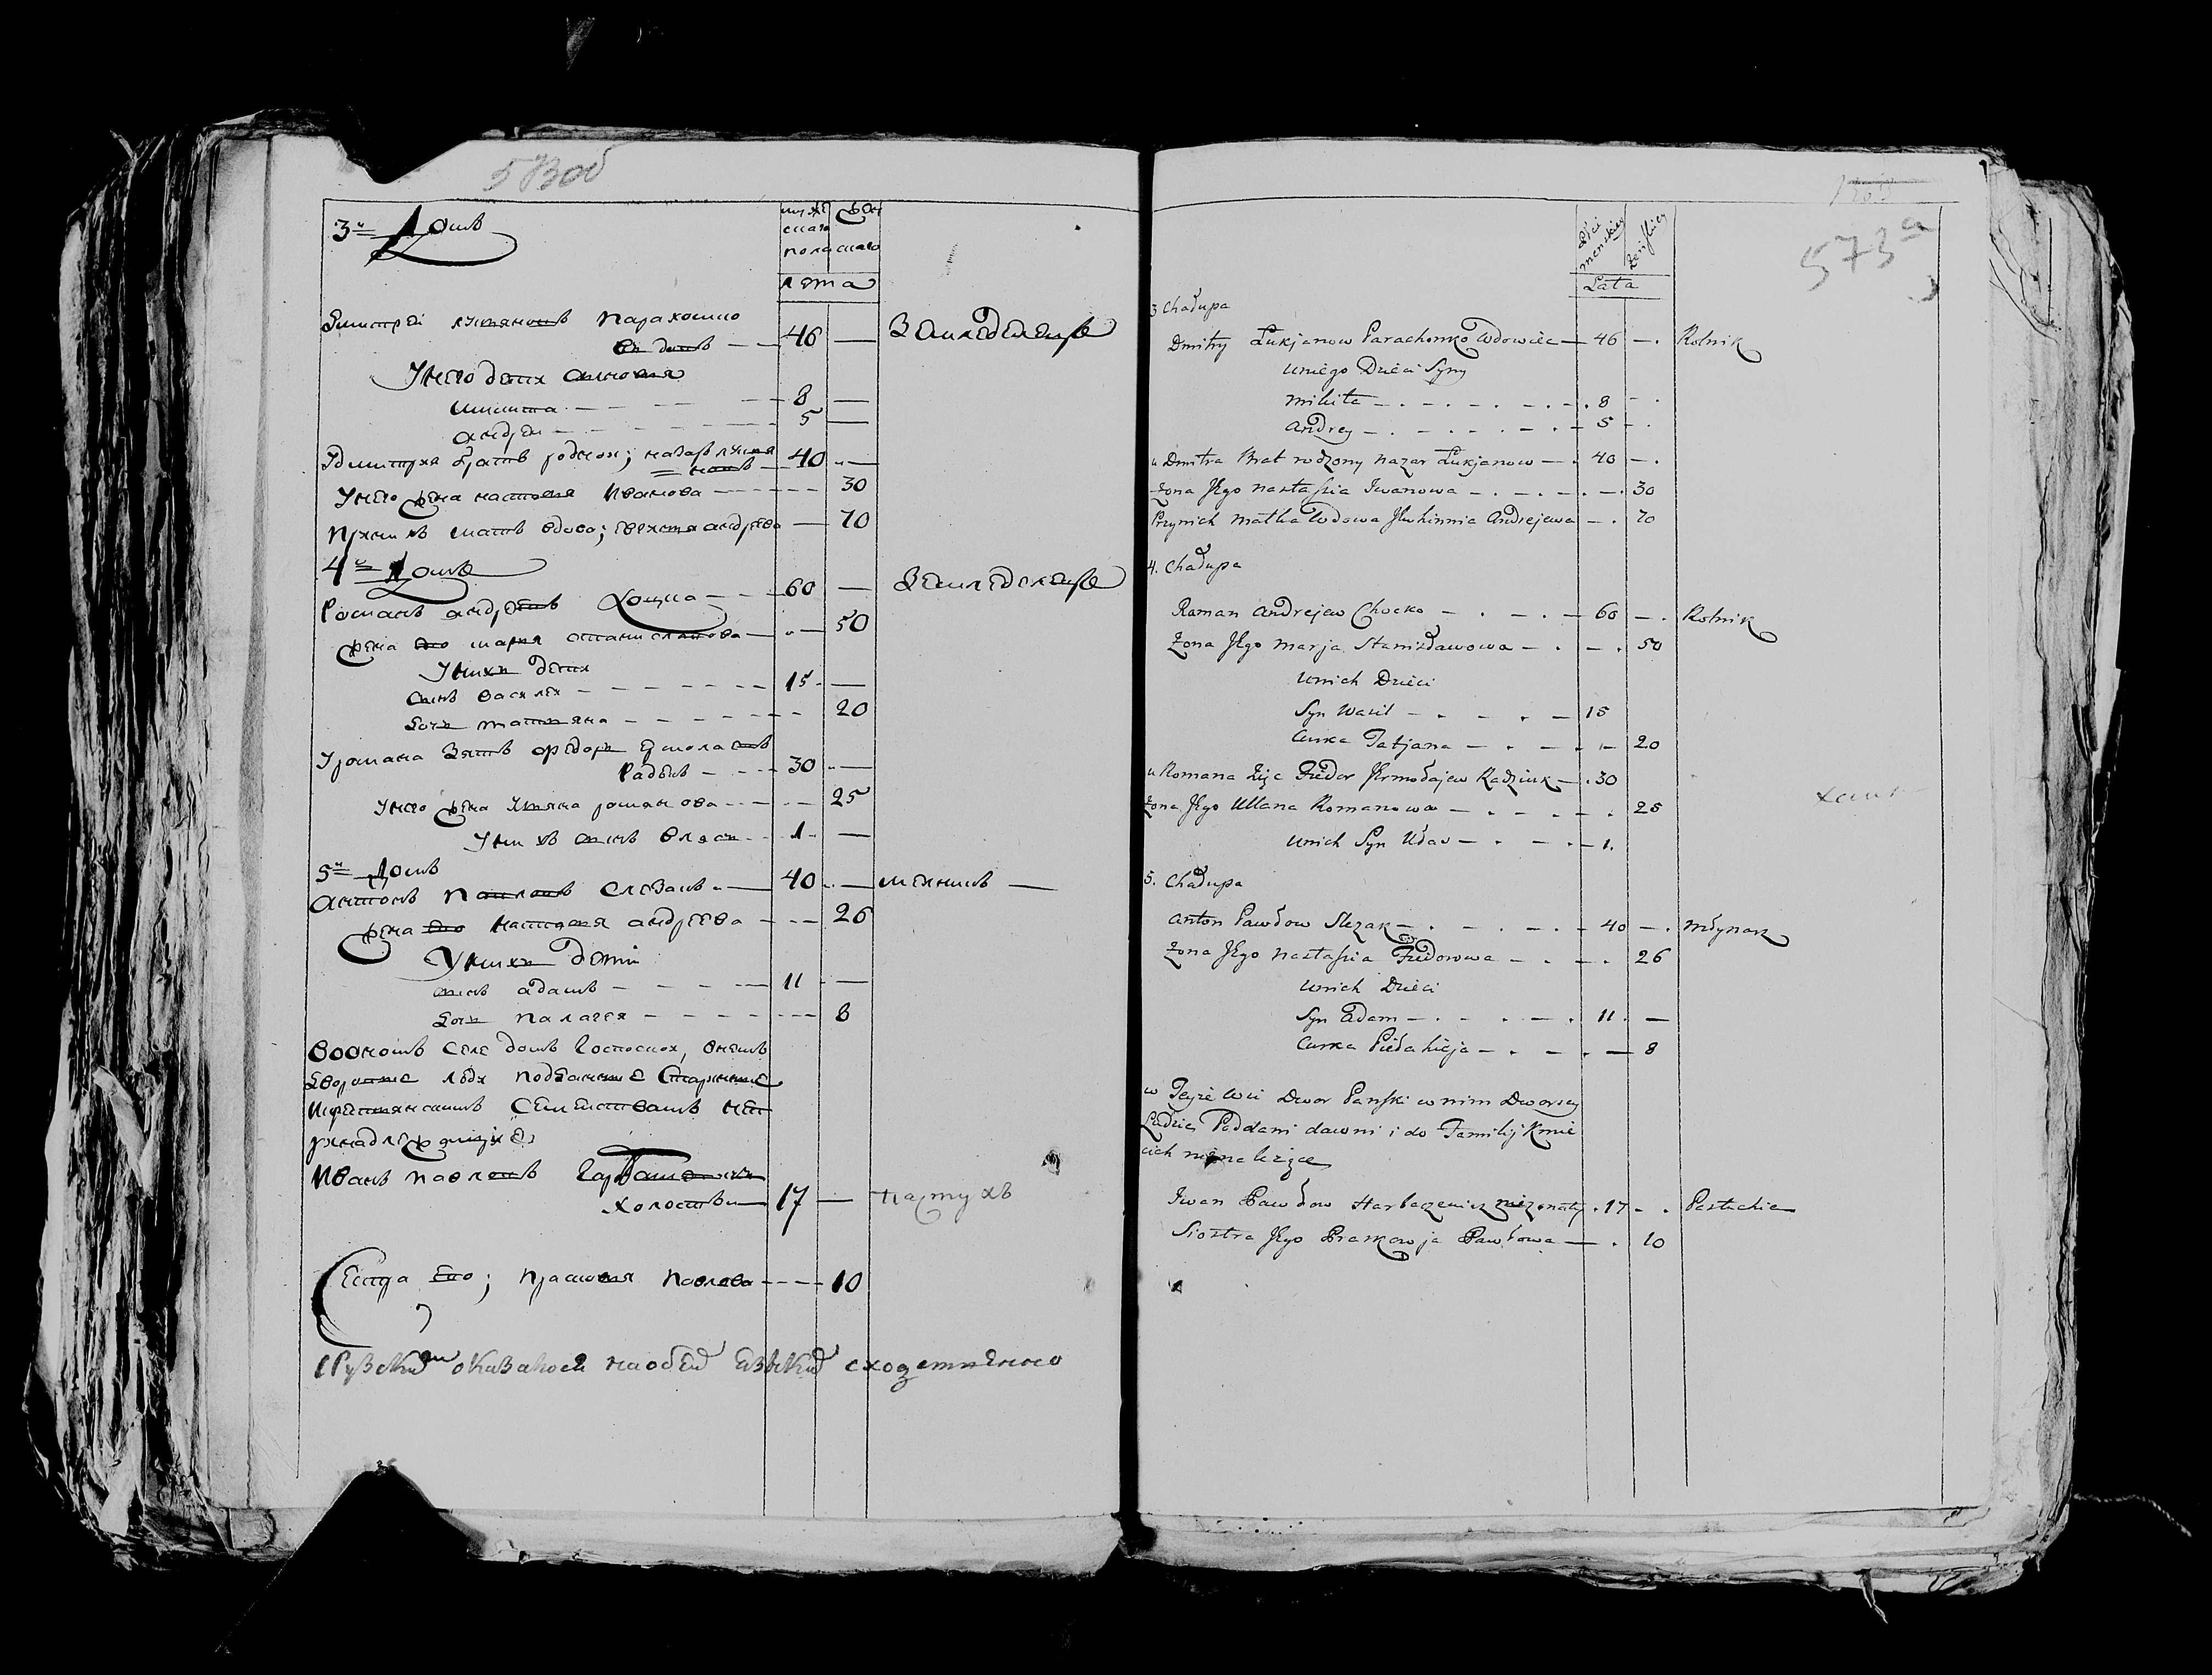 573об
3й Домъ
мужеска пола
женскаго
лета
Дмитрей лукяновъ Парахонко
вдовъ — 46 — Земледелецъ
У него дети сыновя
микита — 8 —
андрей — 5 —
У дмитрия братъ родной; назаръ лукяновъ — 40 —
У него жена настася Иванова — 30
При нихъ мать вдова; андреева — 70
4й Домъ
Романъ андреевъ Хоцка — 60 — Земледелецъ
жена его марья станиславова — 50
У нихъ дети
сынъ василей — 15 —
дочь татьяна — 20
У романа зять федоръ ермолаевъ
Радюкъ — 30 —
У него жена Уляна романова — 25
У нихъ сынъ власъ — 1 —
5й Домъ
антонъ павловъ слезакъ — 40 — мелникъ —
жена его настася андреева — 26
У нихъ дети
сынъ адамъ — 11 —
дочь палагея — 8
В ономъ селе домъ Господской, в немъ
дворовые люди подданные старинные
и крестянскимъ семействамъ не
принадлежащие
Иванъ павловъ Гарбацевичъ
холостый — 17 — пастухъ
Сестра его; прасковя павлова — 10
573а
Płci
męskiey
żeńskiey
Lata
3 Chałupa
Dmitry Łukjanow Parachonko Wdowiec — 46 — Rolnik
u niego Dzieci Syny
Mikita — 8 —
Andrey — 5 —
u Dmitra Brat rodzony Nazar Łukjanow — 40 —
Żona Jego Nastassia Iwanowa — 30
Przy nich Matka Wdowa Andrejewa — 70
4. Chałupa
Roman Andrejew Chocko — 60 — Rolnik
Żona Jego Marja Stanisławowa — 50
u nich Dzieci
Syn Wasil — 15
Curka Tatjana — 20
u Romana Zięć Fiedor Jermołajew Radziuk — 30
Żona Jego Ullana Romanowa — 25
u nich Syn Ułas — 1.
5. Chałupa
Anton Pawłow Slezak — 40 — Młynarz
Żona Jego Nastassia Fiedorowa — 26
u nich Dzieci
Syn Adam — 11. —
Curka Piełahieja — 8
w Teyże Wsi Dwor Pański w nim Dworscy
Ludzie Poddani dawni i do Familij Kmie
cich nie należące
Iwan Pawłow Harbacewicz nieżonaty — 17 — Pastuchie
Siostra Jego Praskowja Pawłowa — 10